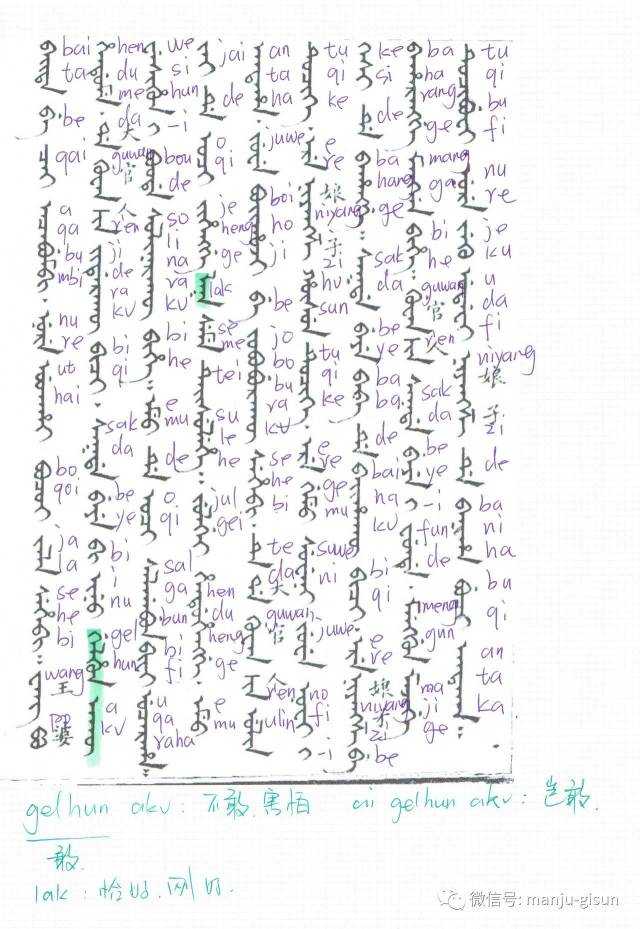 bai ta be qai a qa bu mbi nu re ut hai bo qoi ja la se he bi wang 王 po 婆
hen du me da 大 guwan 官 ren 人 ji de ra kv bi qi sak da be ye bi i nu gel hun a kv
we si hun -i bou de so li na ra kv bi he e mu de o qi sal ga bun bi fi u qa raha
jai de o qi je heng ge lak se me tei su le he jul gei hen du heng ge e mu
an ta ha juwe boi ho ji be jo bo bu ra kv se he bi te da 大 guwan 官 ren 人 ulin
tu qi ke e re niyang 娘 zi 子 hv sun tu qi ke e re ge mu suwe ni juwe no fi -i
ke si de ba hang ge sak da be ye ba ba de bai ha kv bi qi e re niyang 娘 zi 子 be
ba ha rang ge mang ga bi he guwan 官 ren 人 sak da be ye -i fun de meng gun ma ji ge
tu qi bu fi nu re je ku u da fi niyang 娘 zi 子 de ba ni ha bu qi an ta ka
gelhun akv: 不敢.害怕 ai gelhun akv: 岂敢.
敢.
lak: 恰好.刚好.
微信号: manju-gisun